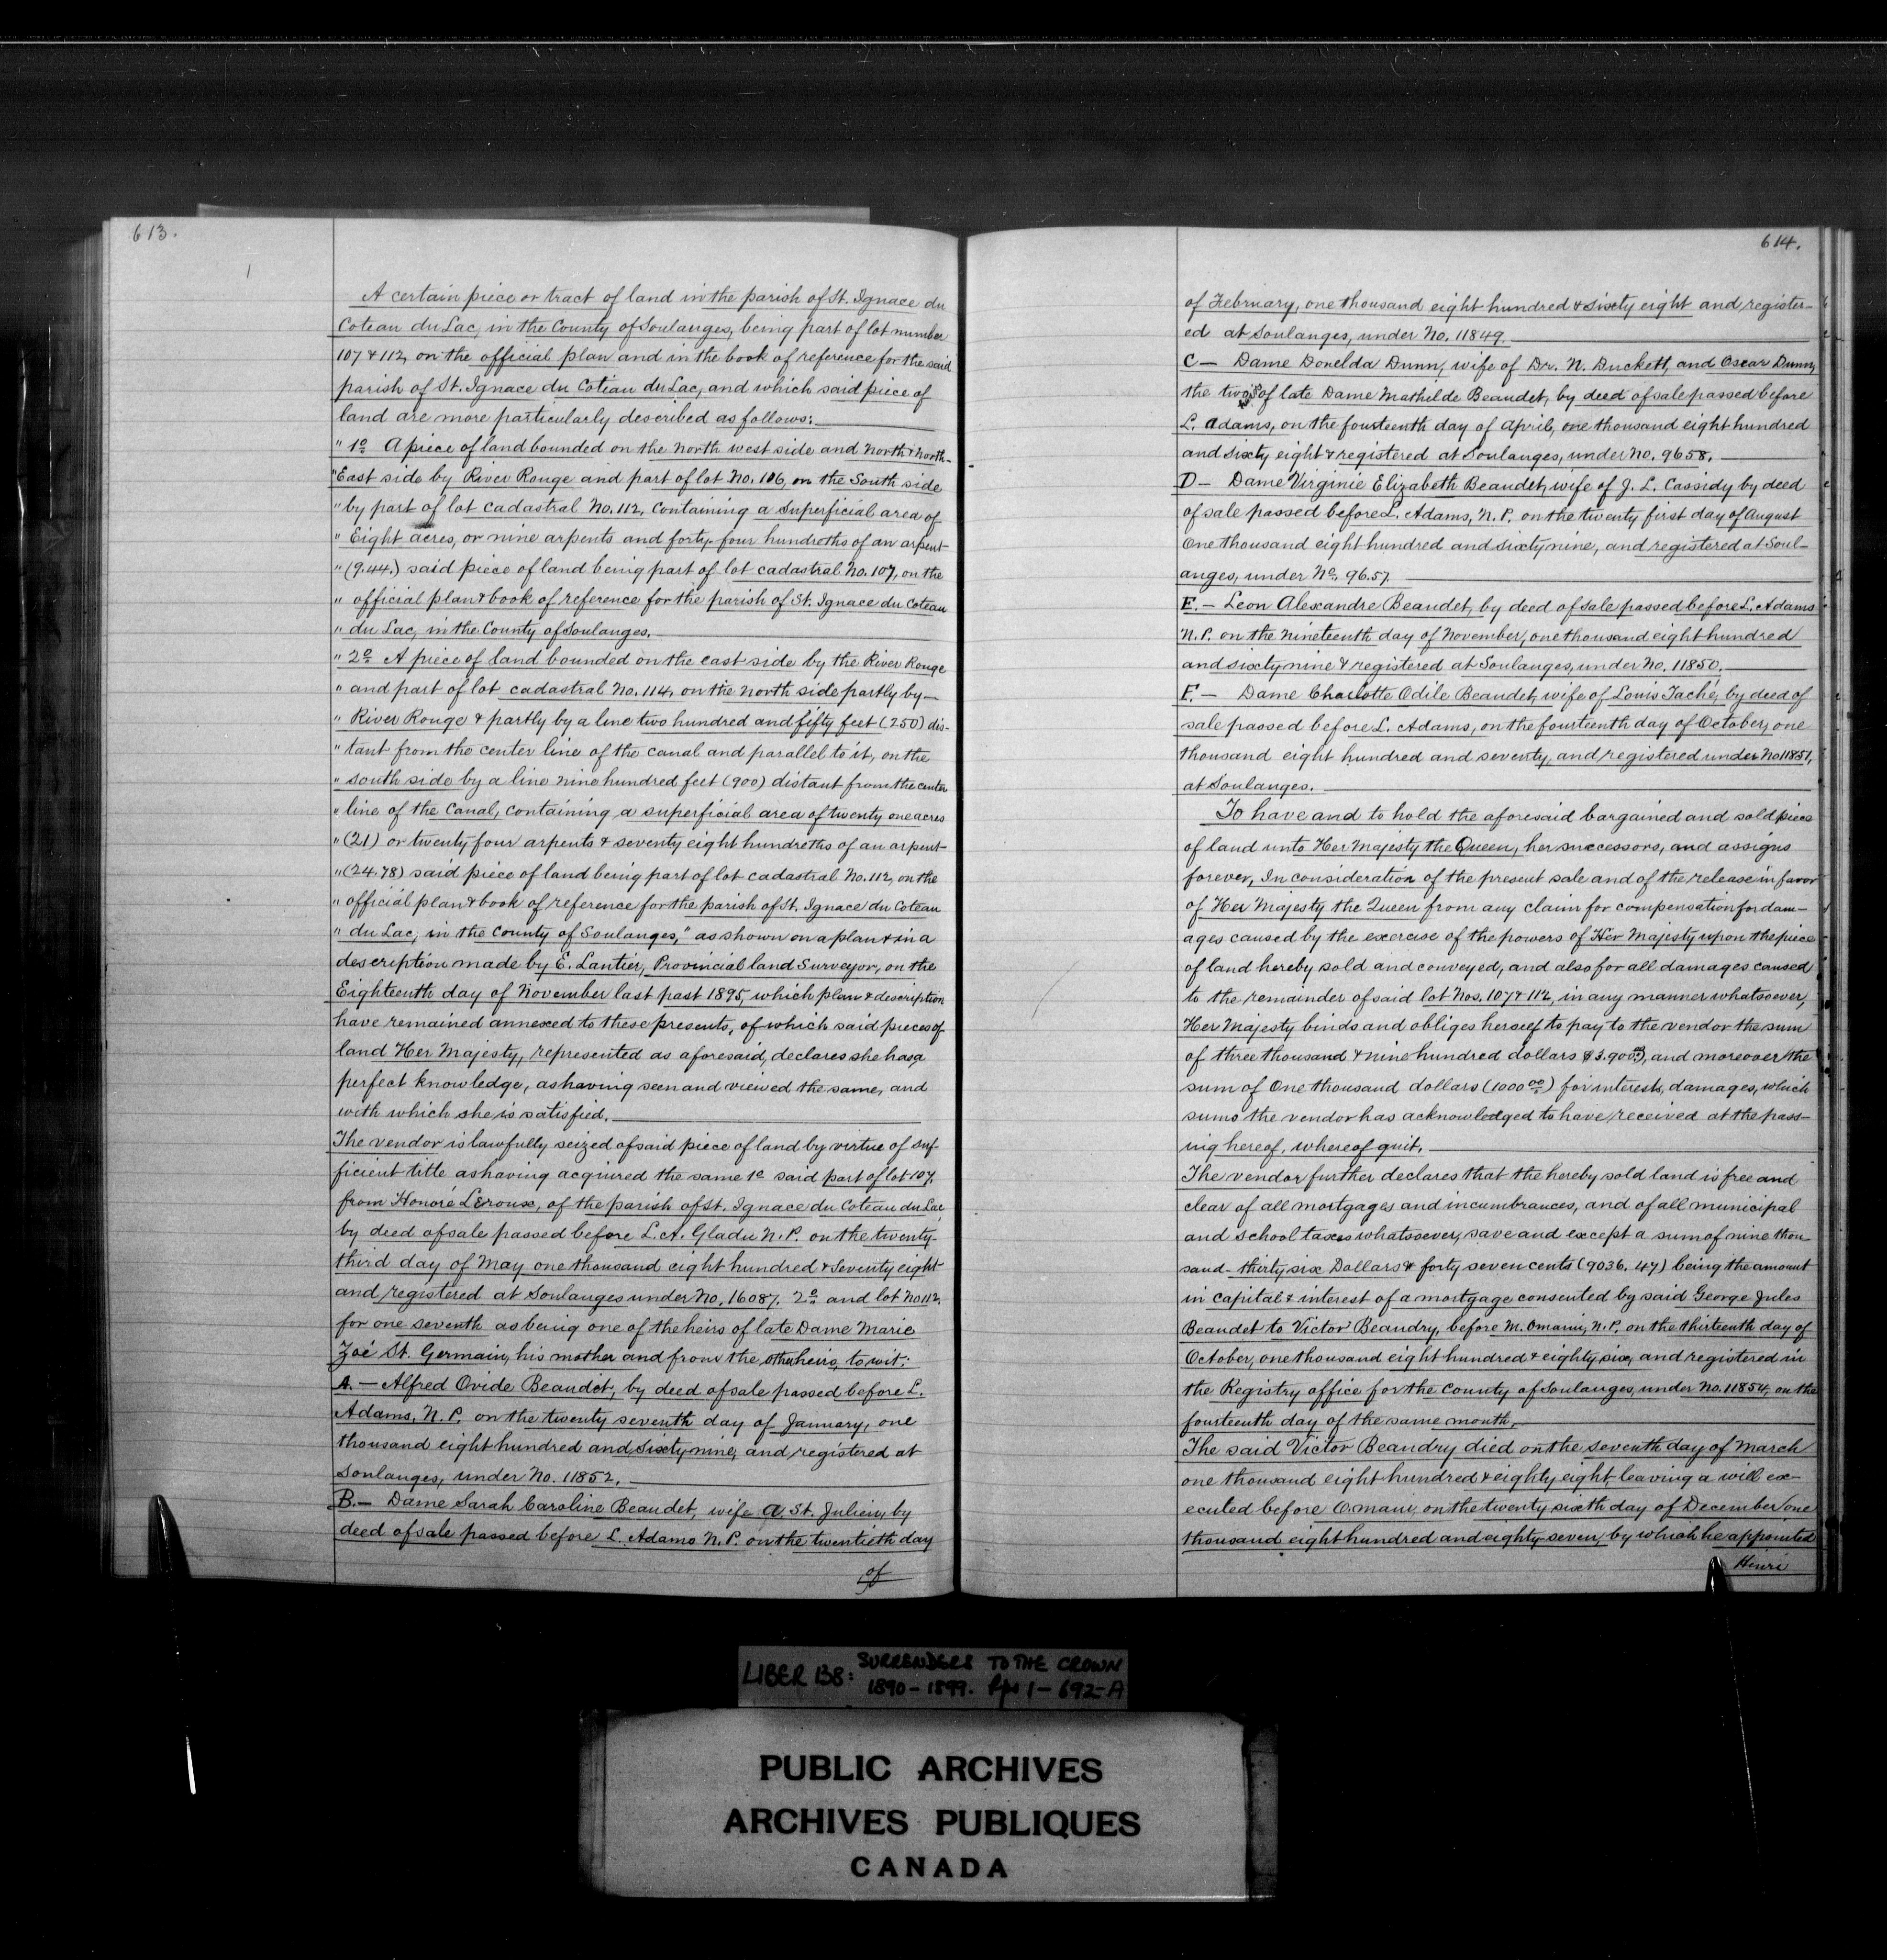 613.
A certain piece or tract of land in the parish of St. Ignace du
Coteau du Lac, in the County of Soulanges, being part of lot number
107 & 112, on the official plan and in the book of reference for the said
parish of St. Ignace du Coteau du Lac, and which said piece of
land are more particularly described as follows:
" 1o A piece of land bounded on the North west side and North & North-
"East side by River Rouge and part of lot No. 106, on the South side
" by part of lot cadastral No. 112, Containing a Superficial area of
" Eight acres, or nine arpents and forty-four hundreths of an arpent-
" (9.44.) said piece of land being part of lot cadastral No. 107, on the
" official plan & book of reference for the parish of St. Ignace du Coteau
" du Lac, in the County of Soulanges.
" 2o A piece of land bounded on the east side by the River Rouge
" and part of lot cadastral No. 114, on the north side partly by—
" River Rouge & partly by a line two hundred and fifty feet (250) dis-
" tant from the center line of the canal and parallel to it, on the
" south side by a line nine hundred feet (900) distant from the center
" line of the Canal, containing a superficial area of twenty one acres
" (21) or twenty four arpents & seventy eight hundreths of an arpent-
" (24.78) said piece of land being part of lot cadastral No. 112, on the
" official plan & book of reference for the parish of St. Ignace du Coteau
" du Lac, in the County of Soulanges," as shown on a plan & in a
description made by E. Lantier, Provincial land Surveyor, on the
Eighteenth day of November last past 1895, which plan & description
have remained annexed to these presents, of which said pieces of
land Her Majesty, represented as aforesaid, declares she has a
perfect knowledge, as having seen and viewed the same, and
with which she is satisfied.
The vendor is lawfully seized of said piece of land by virtue of suf-
ficient title as having acquired the same 1o said part of lot 107,
from Honoré Leroux, of the parish of St. Ignace du Coteau du Lac,
by deed of sale passed before L. A. Gladu N. P. on the twenty-
third day of May one thousand eight hundred & Seventy eight
and registered at Soulanges under No. 16087. 2o and lot No 112,
for one seventh as being one of the heirs of late Dame Marie
Zoé St. Germain, his mother and from the other heirs, to wit:
A. — Alfred Ovide Beaudet, by deed of sale passed before L.
Adams, N. P. on the twenty seventh day of January, one
thousand eight hundred and sixty nine, and registered at
Soulanges, under No. 11852.
B. — Dame Sarah Caroline Beaudet, wife A. St. Julien, by
deed of sale passed before L. Adams N. P. on the twentieth day
of
614.
of February, one thousand eight hundred & sixty eight and register-
ed at Soulanges, under No. 11849.
C — Dame Donelda Dunn, wife of Dr. N. Duckett, and Oscar Dunn,
the two of late Dame Mathilde Beaudet, by deed of sale passed before
L. Adams, on the fourteenth day of April, one thousand eight hundred
and sixty eight & registered at Soulanges, under No. 9658.
D — Dame Virginie Elizabeth Beaudet, wife of J. L. Cassidy by deed
of sale passed before L. Adams, N. P. on the twenty first day of August
One thousand eight hundred and sixty nine, and registered at Soul-
anges, under No. 96.57.
E. — Leon Alexandre Beaudet, by deed of sale passed before L. Adams
N. P. on the nineteenth day of November, one thousand eight hundred
and sixty nine & registered at Soulanges, under No. 11850.
F. — Dame Charlotte Odile Beaudet, wife of Louis Taché, by deed of
sale passed before L. Adams, on the fourteenth day of October, one
thousand eight hundred and seventy, and registered under No 11851,
at Soulanges.
To have and to hold the aforesaid bargained and sold piece
of land unto Her Majesty the Queen, her successors, and assigns
forever, In consideration of the present sale and of the release in favor
of Her Majesty the Queen from any claim for compensation for dam-
ages caused by the exercise of the powers of Her Majesty upon the piece
of land hereby sold and conveyed, and also for all damages caused
to the remainder of said lot Nos. 107 & 112, in any manner whatsoever,
Her Majesty binds and obliges herself to pay to the vendor the sum
of three thousand & nine hundred dollars $3.900.00), and moreover the
sum of One thousand dollars (1000 00) for interest, damages, which
sums the vendor has acknowledged to have received at the pass-
ing hereof, whereof quit.
The vendor further declares that the hereby sold land is free and
clear of all mortgages and incumbrances, and of all municipal
and school taxes whatsoever, save and except a sum of nine thou
sand- thirty six Dollars & forty seven cents (9036. 47) being the amount
in capital & interest of a mortgage consented by said George Jules
Beaudet to Victor Beaudry, before M. Omarin, N. P. on the thirteenth day of
October, one thousand eight hundred & eighty six, and registered in
the Registry office for the County of Soulanges, under No. 11854, on the
fourteenth day of the same month.
The said Victor Beaudry died on the seventh day of March
one thousand eight hundred & eighty eight leaving a will ex-
ecuted before O.mani, on the twenty sixth day of December one
thousand eight hundred and eighty seven, by which he appointed
Henri
LIBER 138: SURRENDERS TO THE CROWN
1890-1899. Pps 1-692-A
PUBLIC ARCHIVES
ARCHIVES PUBLIQUES
CANADA